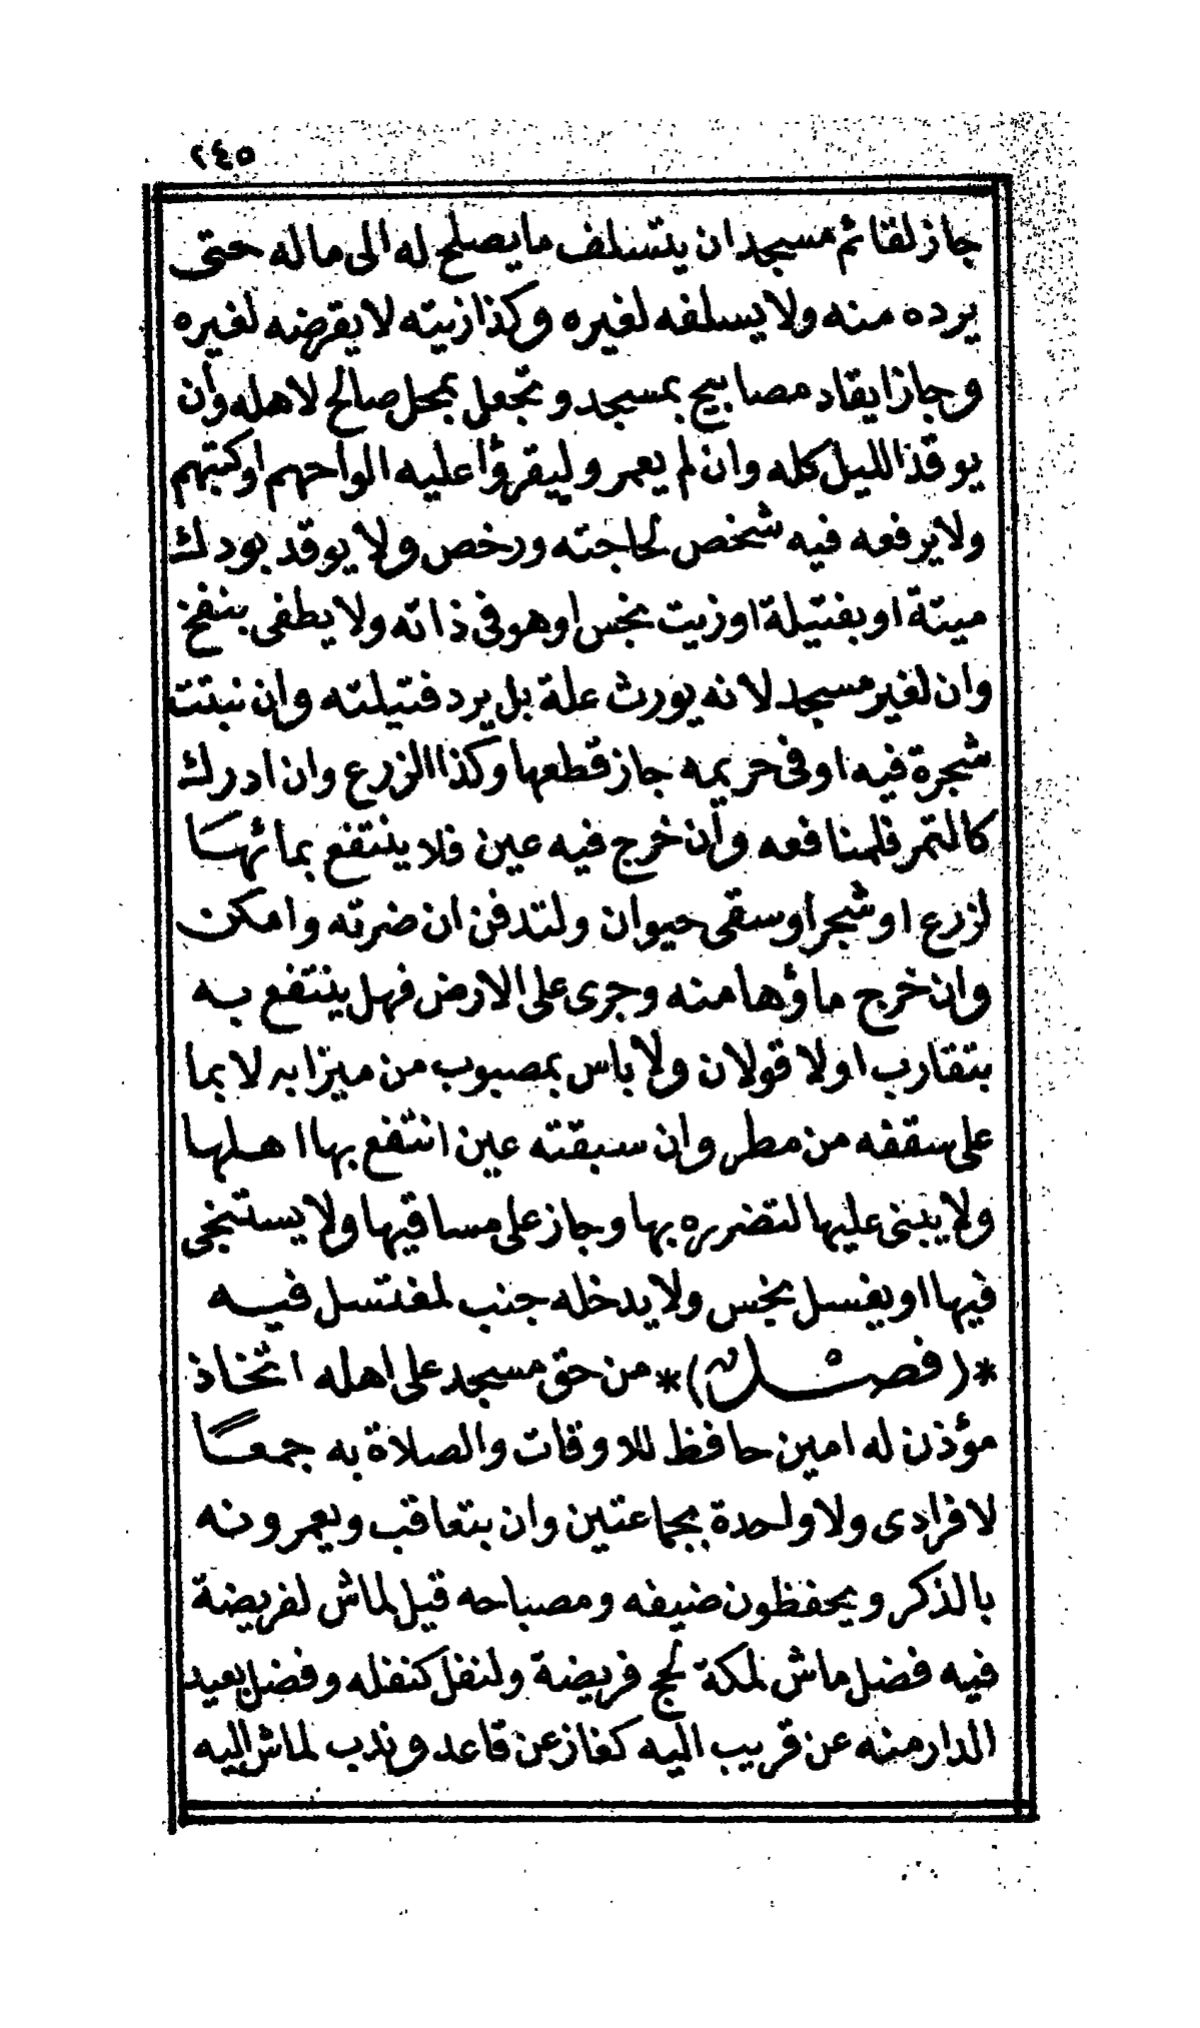 ٢٤٥
جاز لقائم مسجد ان يتسلف ما يصلح له الى ماله حتى
يرده منه ولا يسلفه لغيره وكذا زيته لا يقرضه لغيره
وجاز ايقاد مصابيح بمسجد وتجعل بمحل صالح لاهله وان
يوقد الليل كله وان لم يعمر وليقرؤا عليه الواحهم اوكتبهم
ولا يرفعه فيه شخص لحاجته ورخص ولا يوقد بودك
ميتة او بفتيلة او زيت نجس او هو في ذاته ولا يطفى بنفخ
وان لغير مسجد لانه يورث علة بل يرد فتيلته وان نبتت
شجرة فيه او في حريمه جاز قطعها وكذا الزرع وان ادرك
كالتمر فلمنافعه وان خرج فيه عين فلا ينتفع بمائها
لزرع او شجر او سقى حيوان ولتدفن ان ضرته وامكن
وان خرج ماؤها منه وجرى على الارض فهل ينتفع به
بتقارب اولا قولان ولا باس بمصبوب من ميزابه لا بما
على سقفه من مطر وان سبقته عين انتفع بها اهلها
ولا يبنى عليها لتضرره بها وجاز على مساقيها ولا يستنجى
فيها او يغسل نجس ولا يدخله جنب لمغتسل فيه
*(فصل)* من حق مسجد على اهله اتخاذ
مؤذن له امين حافظ للاوقات والصلاة به جمعا
لا فرادى ولا واحدة بجماعتين وان بتعاقب ويعمرونه
بالذكر ويحفظون ضيفه ومصباحه قيل لماش لفريضة
فيه فضل ماش لمكة لحج فريضة ولنفل كنفله وفضل بعيد
الدار منه عن قريب اليه كغاز عن قاعد وندب لماش اليه